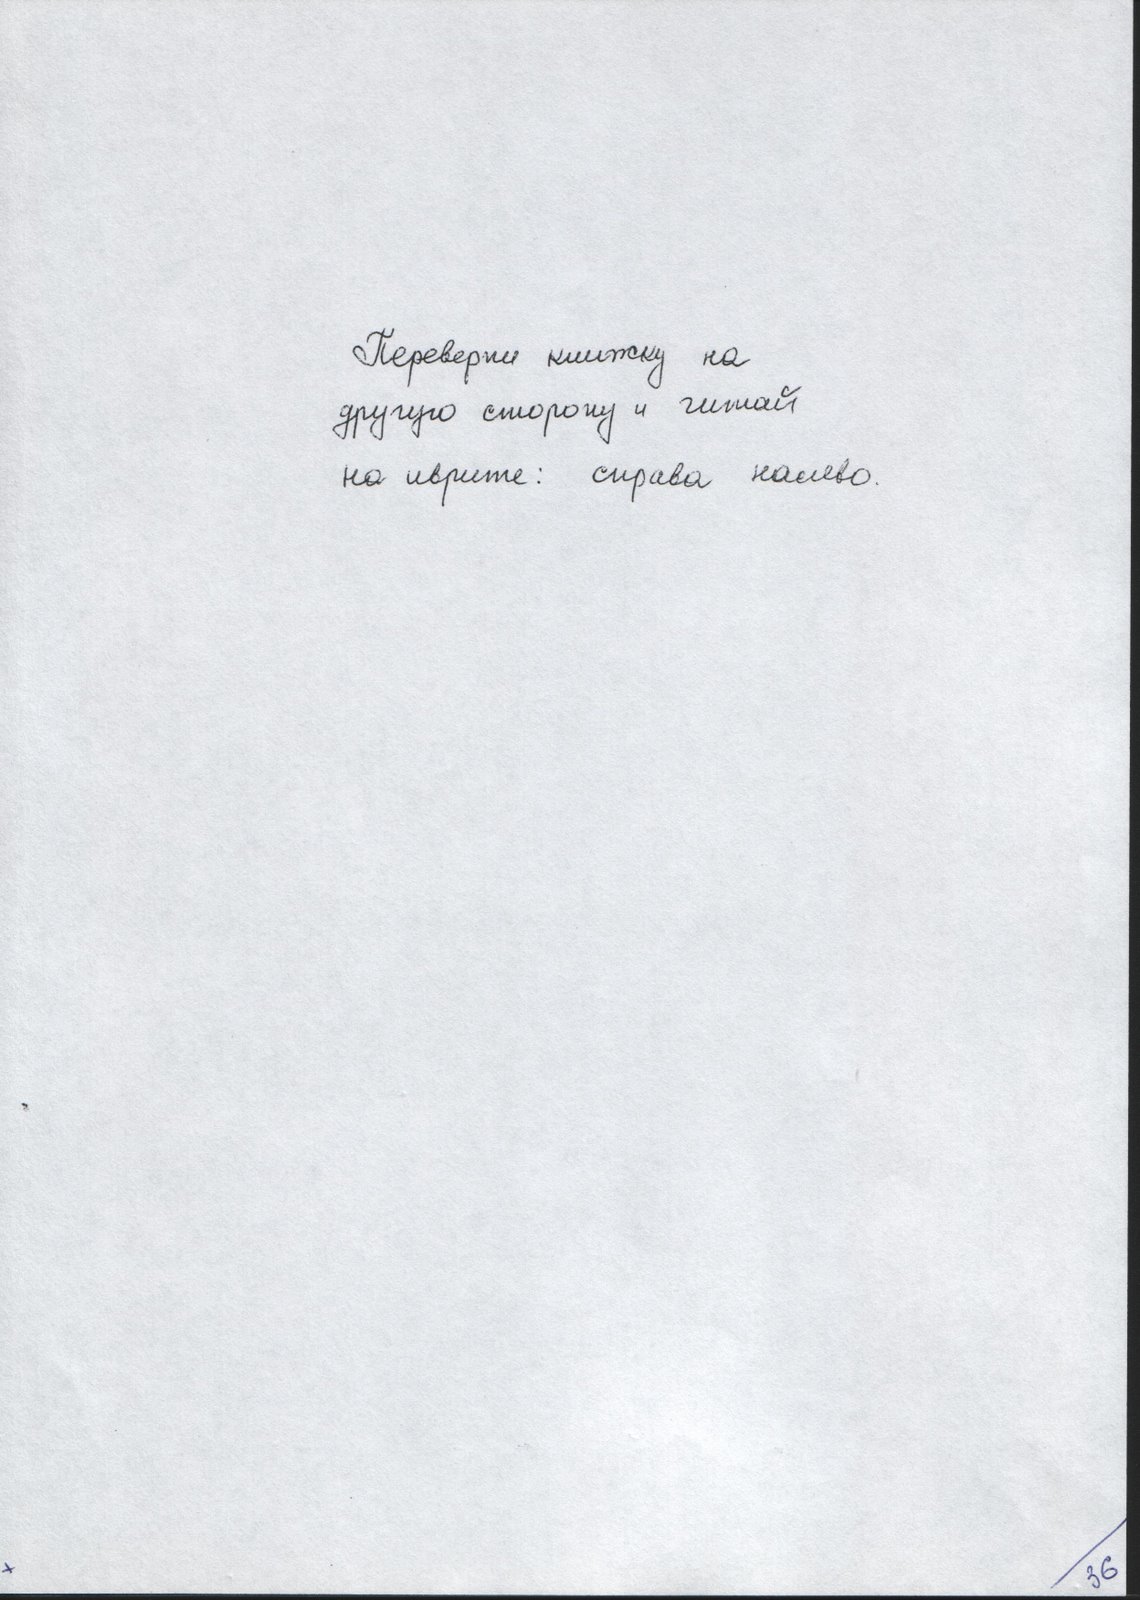 Переверни книжку на
другую сторону и читай
на иврите: справа налево.
36